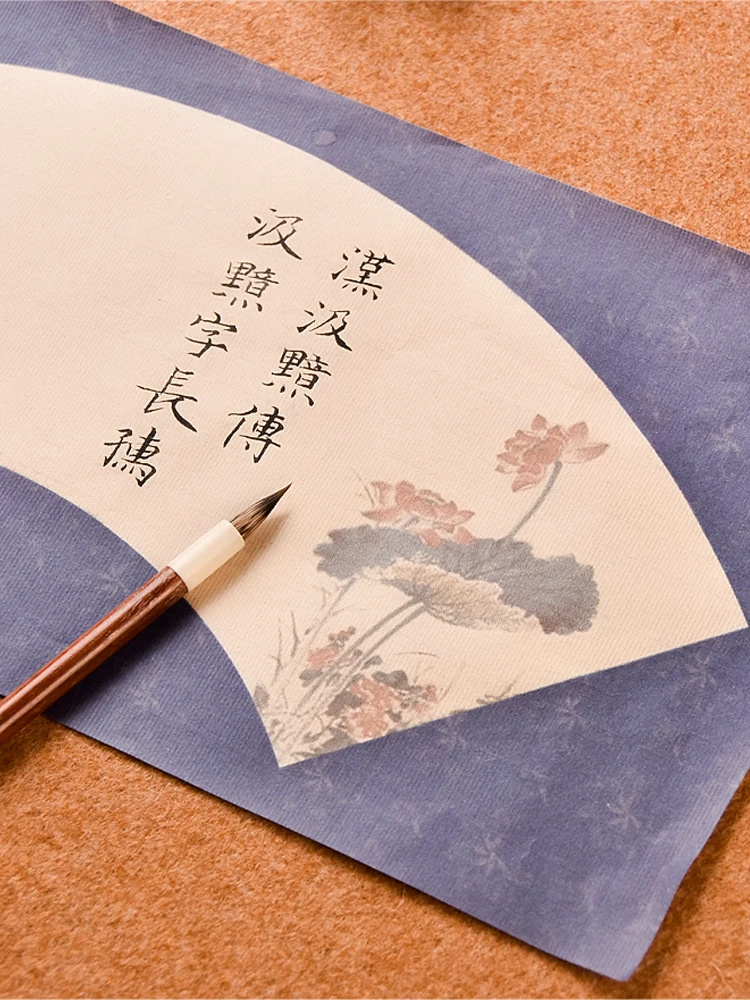 漢汲黯傳
汲黯字長孺